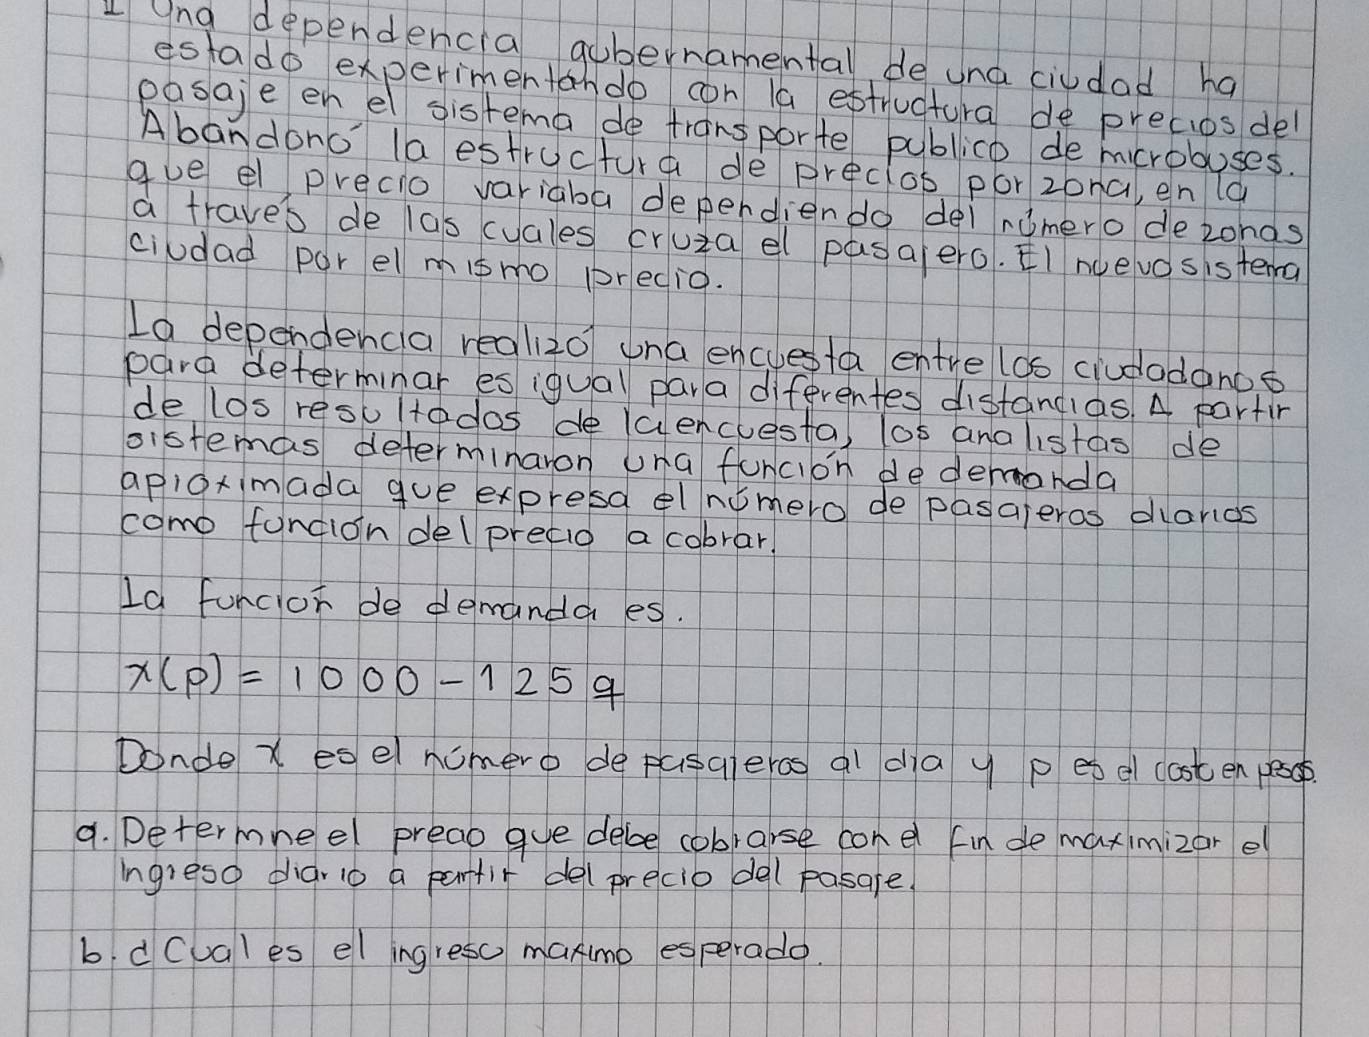 1 Una dependencia gubernamental, de una ciudad ha
estado experimentando con la estructura de precios del
pasaje en el sistema de transporte publico de microbuses.
Abandonó la estructura de precios por zona, en la
que el precio variaba dependiendo del número de zonas
a través de las cuales cruza el pasajero. El nuevo sistema
ciudad por el mismo precio.
La dependencia realizó una encuesta entre los ciudadanos
para determinar es igual para diferentes distancias. A partir
de los resultados de la encuesta, los analistas de
sistemas determinaron una función de demanda
aproximada que expresa el número de pasajeros diarios
como función del precio a cobrar.
La función de demanda es.
x(p) = 1000 - 125q
Donde x es el número de pasajeros al dia y p es el costo en pesos.
a. Determine el precio que debe cobrarse con el fin de maximizar el
ingreso diario a partir del precio del pasaje.
b. ¿Cual es el ingreso maximo esperado.